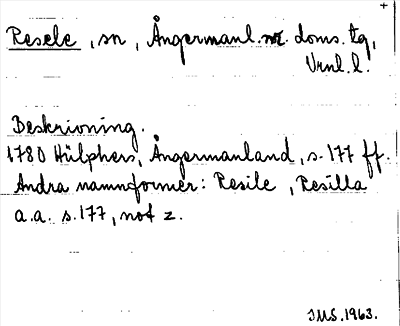 +
Resele, sn, Ångermanl. v. doms. tg,
Vrnl. l.
Beskrivning.
1780 Hülphers, Ångermanland, s. 177 ff.
Andra namnformer: Resile, Resilla
a.a. s. 177, not z.
JMS. 1963.